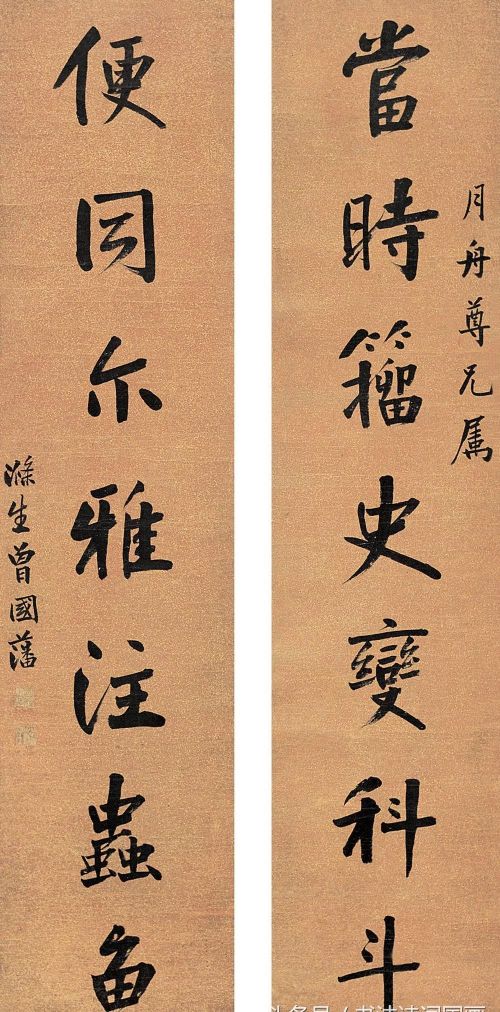 月舟尊兄属
當時籕史變科斗
便同尔雅注蟲魚
滌生曾國藩
头条号 / 书法诗词国画